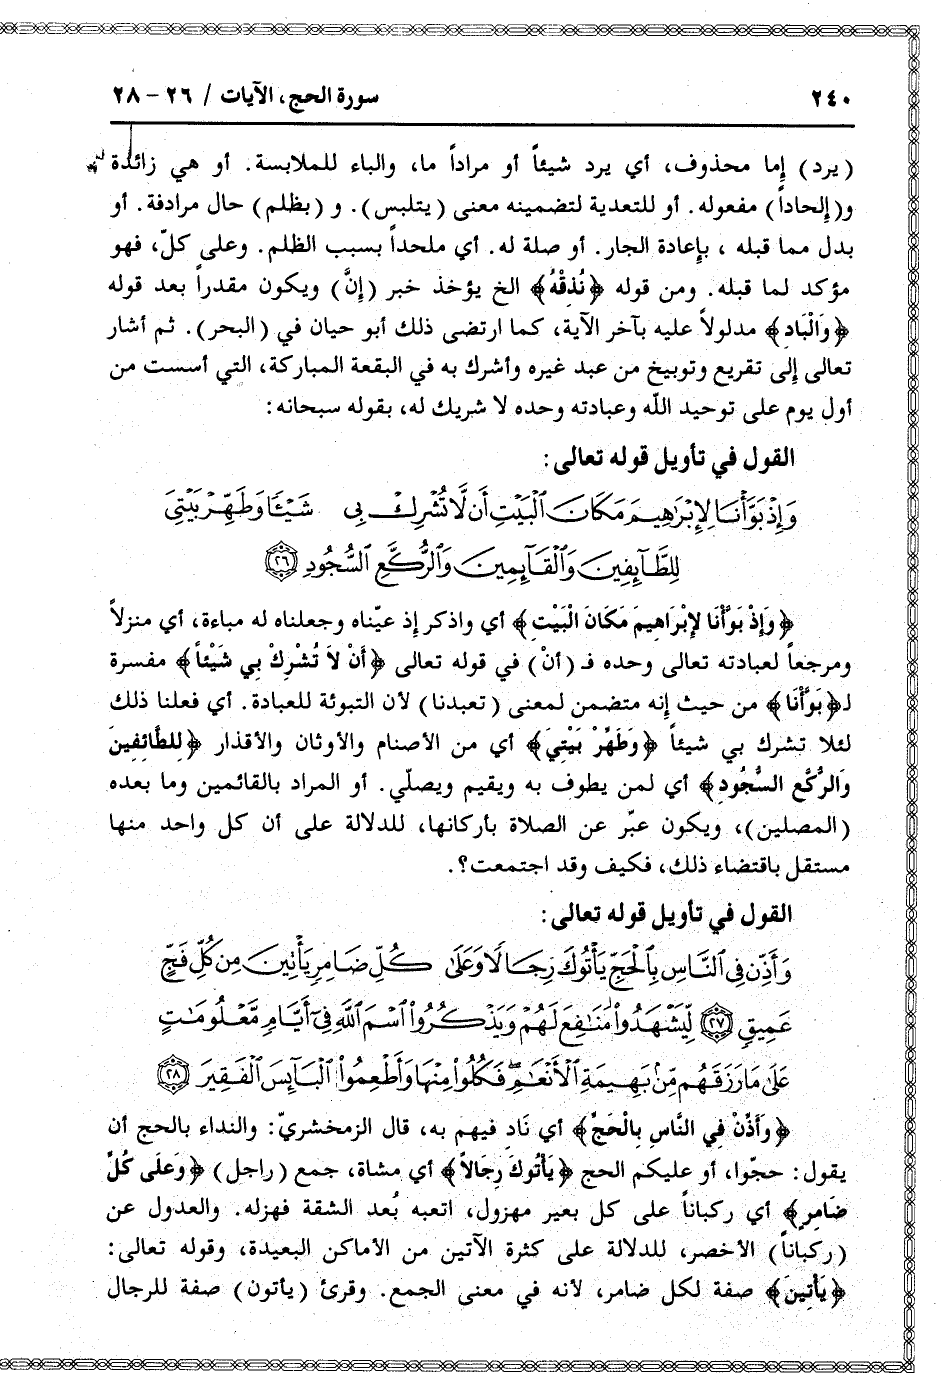 ٢٤٠ سورة الحج، الآيات / ٢٦ - ٢٨
(يرد) إما محذوف، أي يرد شيئاً أو مراداً ما، والباء للملابسة. أو هي زائدة
و(إلحاداً) مفعوله. أو للتعدية لتضمينه معنى (يتلبس). و (بظلم) حال مرادفة. أو
بدل مما قبله ، بإعادة الجار. أو صلة له. أي ملحداً بسبب الظلم. وعلى كلّ، فهو
مؤكد لما قبله. ومن قوله ﴿نُذِقْهُ﴾ الخ يؤخذ خبر (إنَّ) ويكون مقدراً بعد قوله
﴿وَالْبَادِ﴾ مدلولاً عليه بآخر الآية، كما ارتضى ذلك أبو حيان في (البحر). ثم أشار
تعالى إلى تقريع وتوبيخ من عبد غيره وأشرك به في البقعة المباركة، التي أسست من
أول يوم على توحيد الله وعبادته وحده لا شريك له، بقوله سبحانه:
القول في تأويل قوله تعالى:
وَإِذْ بَوَّأْنَا لِإِبْرَاهِيمَ مَكَانَ ٱلْبَيْتِ أَن لَّا تُشْرِكْ بِي شَيْـًٔا وَطَهِّرْ بَيْتِيَ
لِلطَّآئِفِينَ وَٱلْقَآئِمِينَ وَٱلرُّكَّعِ ٱلسُّجُودِ ٢٦
﴿وَإِذْ بَوَّأْنَا لإِبْرَاهِيمَ مَكَانَ الْبَيْتِ﴾ أي واذكر إذ عيّناه وجعلناه له مباءة، أي منزلاً
ومرجعاً لعبادته تعالى وحده فـ (أنْ) في قوله تعالى ﴿أَنْ لاَ تُشْرِكْ بِي شَيْئاً﴾ مفسرة
لـ﴿بَوَّأْنَا﴾ من حيث إنه متضمن لمعنى (تعبدنا) لأن التبوئة للعبادة. أي فعلنا ذلك
لئلا تشرك بي شيئاً ﴿وَطَهِّرْ بَيْتِيَ﴾ أي من الأصنام والأوثان والأقذار ﴿لِلطَّائِفِينَ
وَالرُّكَّعِ السُّجُودِ﴾ أي لمن يطوف به ويقيم ويصلّي. أو المراد بالقائمين وما بعده
(المصلين)، ويكون عبّر عن الصلاة بأركانها، للدلالة على أن كل واحد منها
مستقل باقتضاء ذلك، فكيف وقد اجتمعت؟.
القول في تأويل قوله تعالى:
وَأَذِّن فِي ٱلنَّاسِ بِٱلْحَجِّ يَأْتُوكَ رِجَالًا وَعَلَىٰ كُلِّ ضَامِرٍ يَأْتِينَ مِن كُلِّ فَجٍّ
عَمِيقٍ ٢٧ لِّيَشْهَدُوا۟ مَنَٰفِعَ لَهُمْ وَيَذْكُرُوا۟ ٱسْمَ ٱللَّهِ فِىٓ أَيَّامٍ مَّعْلُومَٰتٍ
عَلَىٰ مَا رَزَقَهُم مِّنۢ بَهِيمَةِ ٱلْأَنْعَٰمِ فَكُلُوا۟ مِنْهَا وَأَطْعِمُوا۟ ٱلْبَآئِسَ ٱلْفَقِيرَ ٢٨
﴿وَأَذِّنْ فِي النَّاسِ بِالْحَجِّ﴾ أي نَادِ فيهم به، قال الزمخشريّ: والنداء بالحج أن
يقول: حجّوا، أو عليكم الحج ﴿يَأْتُوكَ رِجَالاً﴾ أي مشاة، جمع (راجل) ﴿وَعَلَى كُلِّ
ضَامِرٍ﴾ أي ركباناً على كل بعير مهزول، اتعبه بُعد الشقة فهزله. والعدول عن
(ركباناً) الأخصر، للدلالة على كثرة الآتين من الأماكن البعيدة، وقوله تعالى:
﴿يَأْتِينَ﴾ صفة لكل ضامر، لأنه في معنى الجمع. وقرئ (يأتون) صفة للرجال